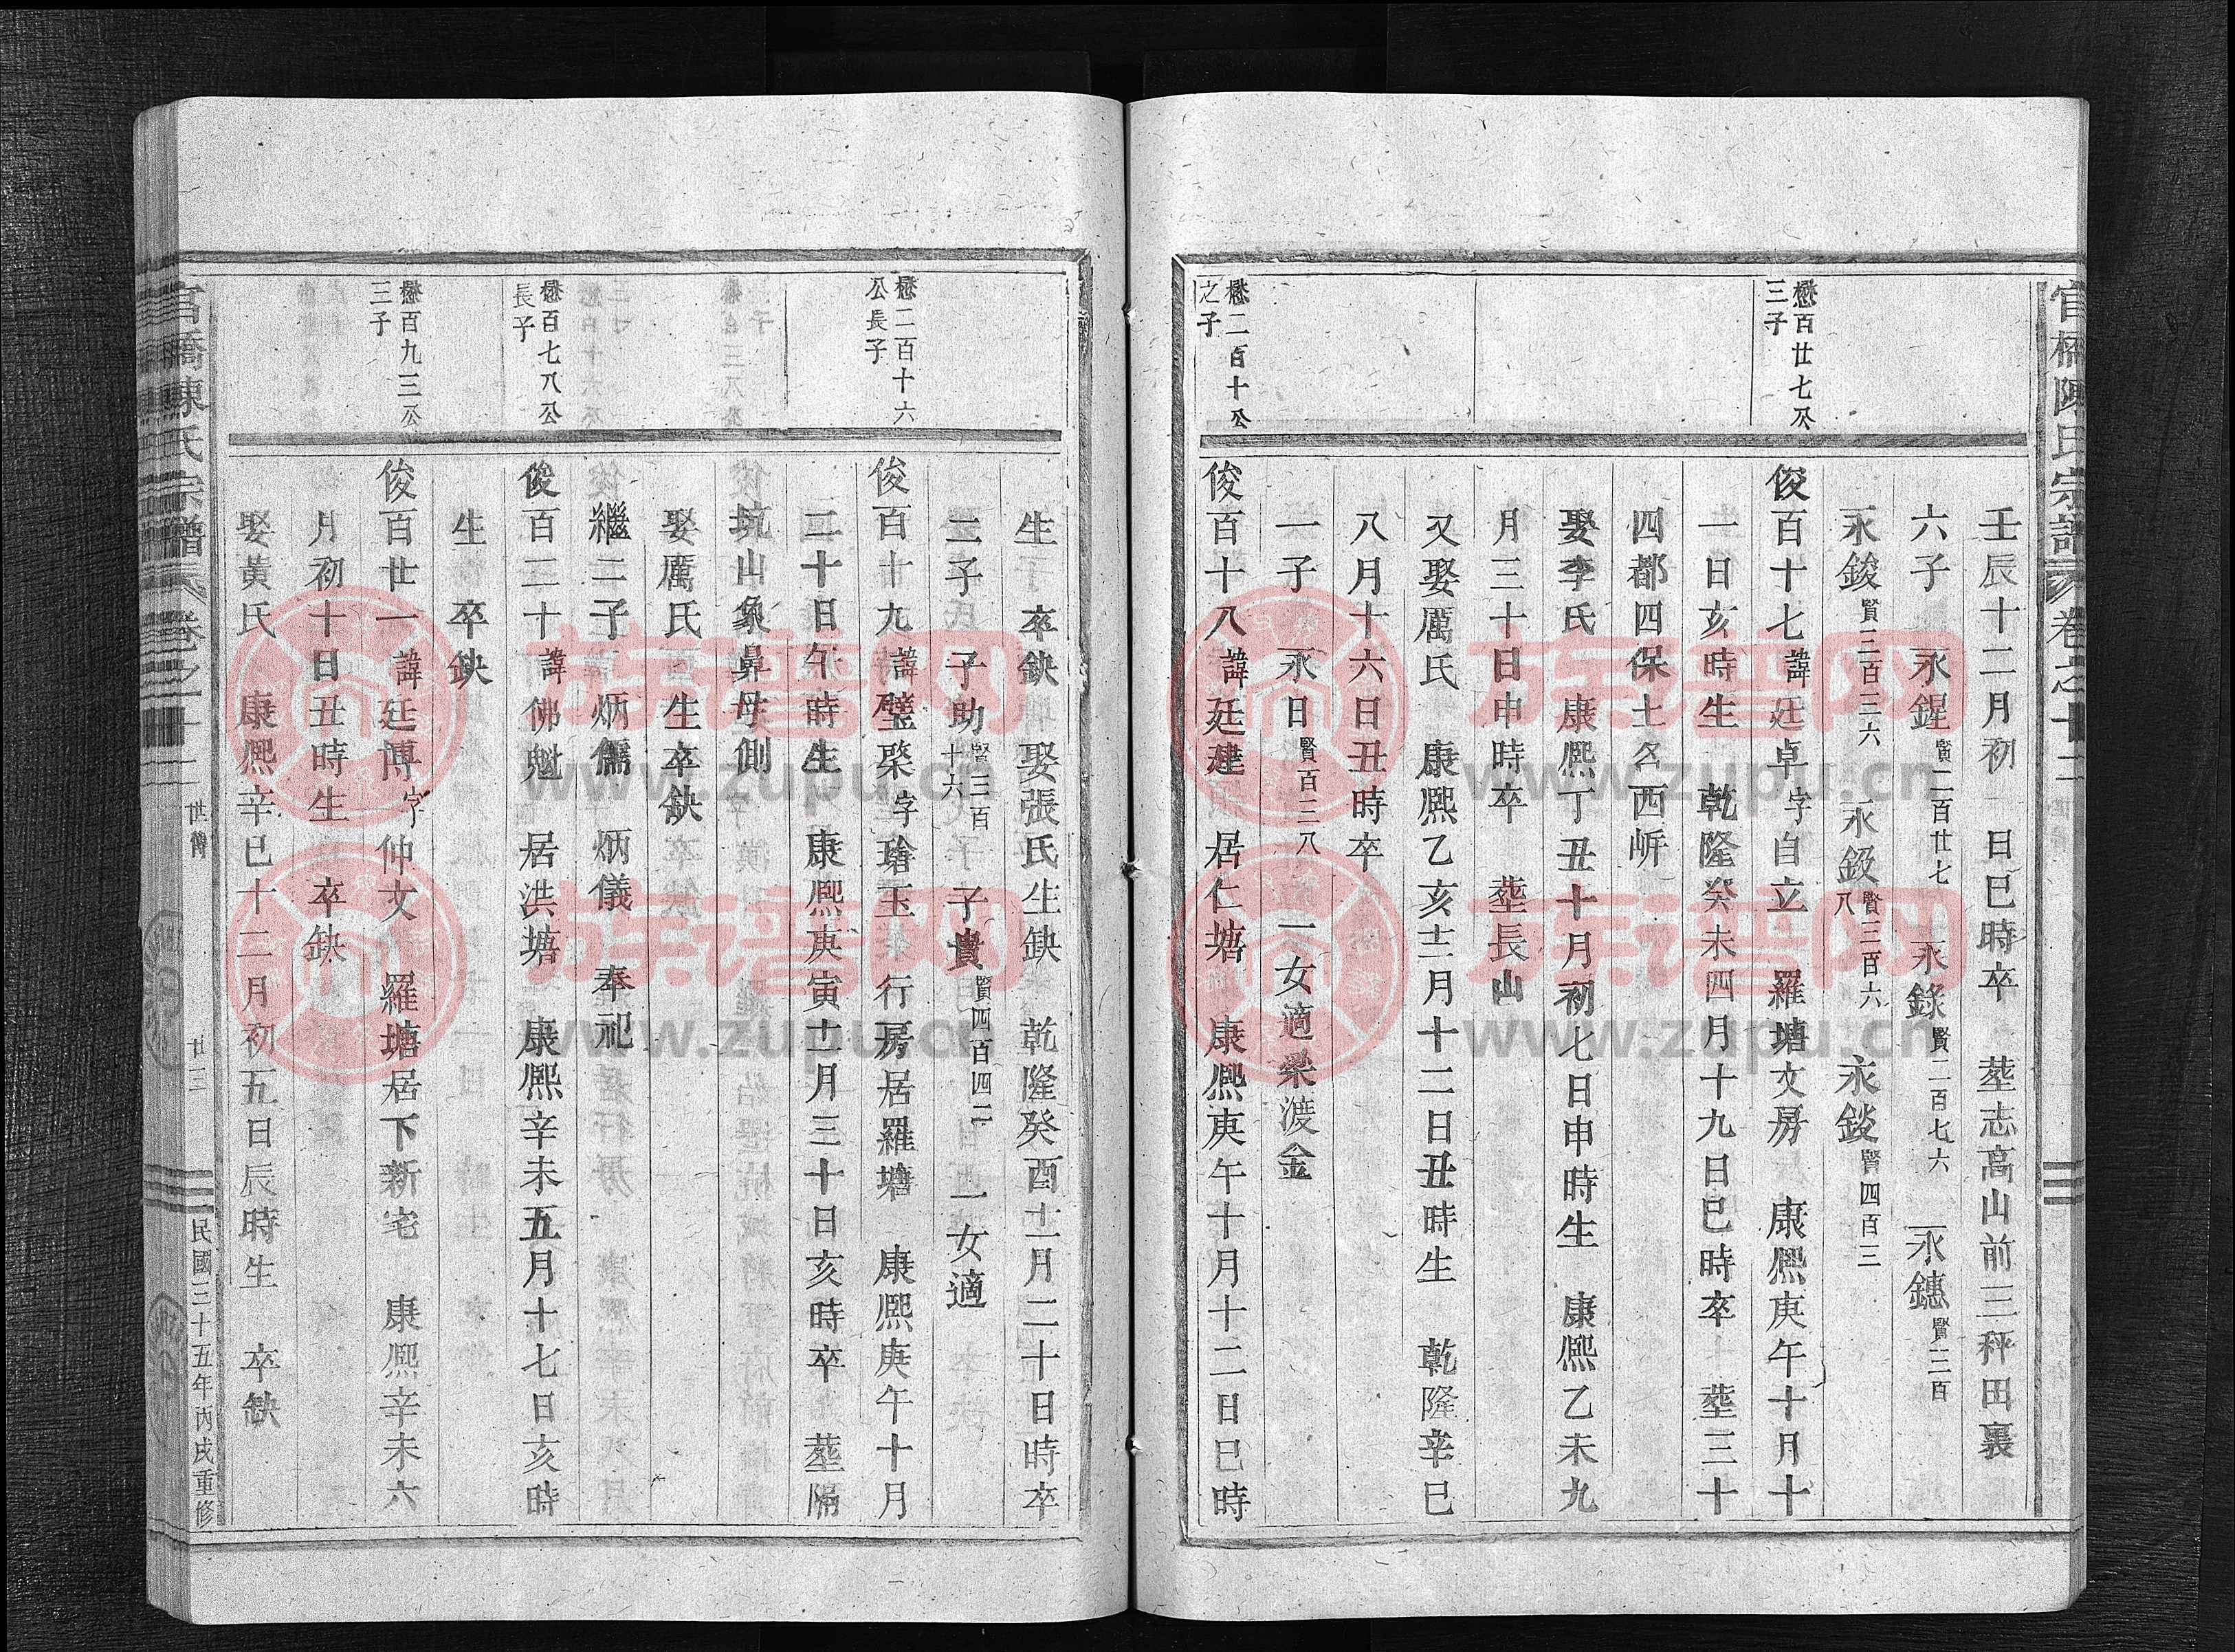 官橋陳氏宗譜 卷之十二
懋百廿七公
三子
懋二百十公
之子
壬辰十二月初 日巳時卒 塟志高山前三秤田裏
六子 永鍟賢二百廿七 永錄賢二百七六 永鏸賢三百
永錂賢三百三六 永鈒賢三百六八 永錟賢四百三
俊百十七諱廷卓字自立 羅塘文房 康熙庚午十月十
一日亥時生 乾隆癸未四月十九日巳時卒 塟三十
四都四保土名西岓
娶李氏 康熙丁丑十月初七日申時生 康熙乙未九
月三十日申時卒 塟長山
又娶厲氏 康熙乙亥十二月十二日丑時生 乾隆辛巳
八月十六日丑時卒
一子 永日賢百二八 一女適梁渡金
俊百十八諱廷建 居仁塘 康熙庚午十月十二日巳時
懋二百十六
公長子
懋百七八公
長子
懋百九三公
三子
生 卒缺 娶張氏生缺 乾隆癸酉十一月二十日時卒
二子 子助賢三百十六 子貴賢四百四二 一女適
俊百十九諱璧棨字瑜玉 行房居羅塘 康熙庚午十月
二十日午時生 康熙庚寅十一月三十日亥時卒 塟隔
坑山象鼻母側
娶厲氏 生卒缺
繼二子 炳儒 炳儀 奉祀
俊百二十諱佛魁 居洪塘 康熙辛未五月十七日亥時
生 卒缺
俊百廿一諱廷博字仲文 羅塘居下新宅 康熙辛未六
月初十日丑時生 卒缺
娶黃氏 康熙辛巳十二月初五日辰時生 卒缺
官橋陳氏宗譜 卷之十二 世傳 廿三 民國三十五年丙戌重修
族谱网
www.zupu.cn
族谱网
www.zupu.cn
族谱网
www.zupu.cn
族谱网
www.zupu.cn